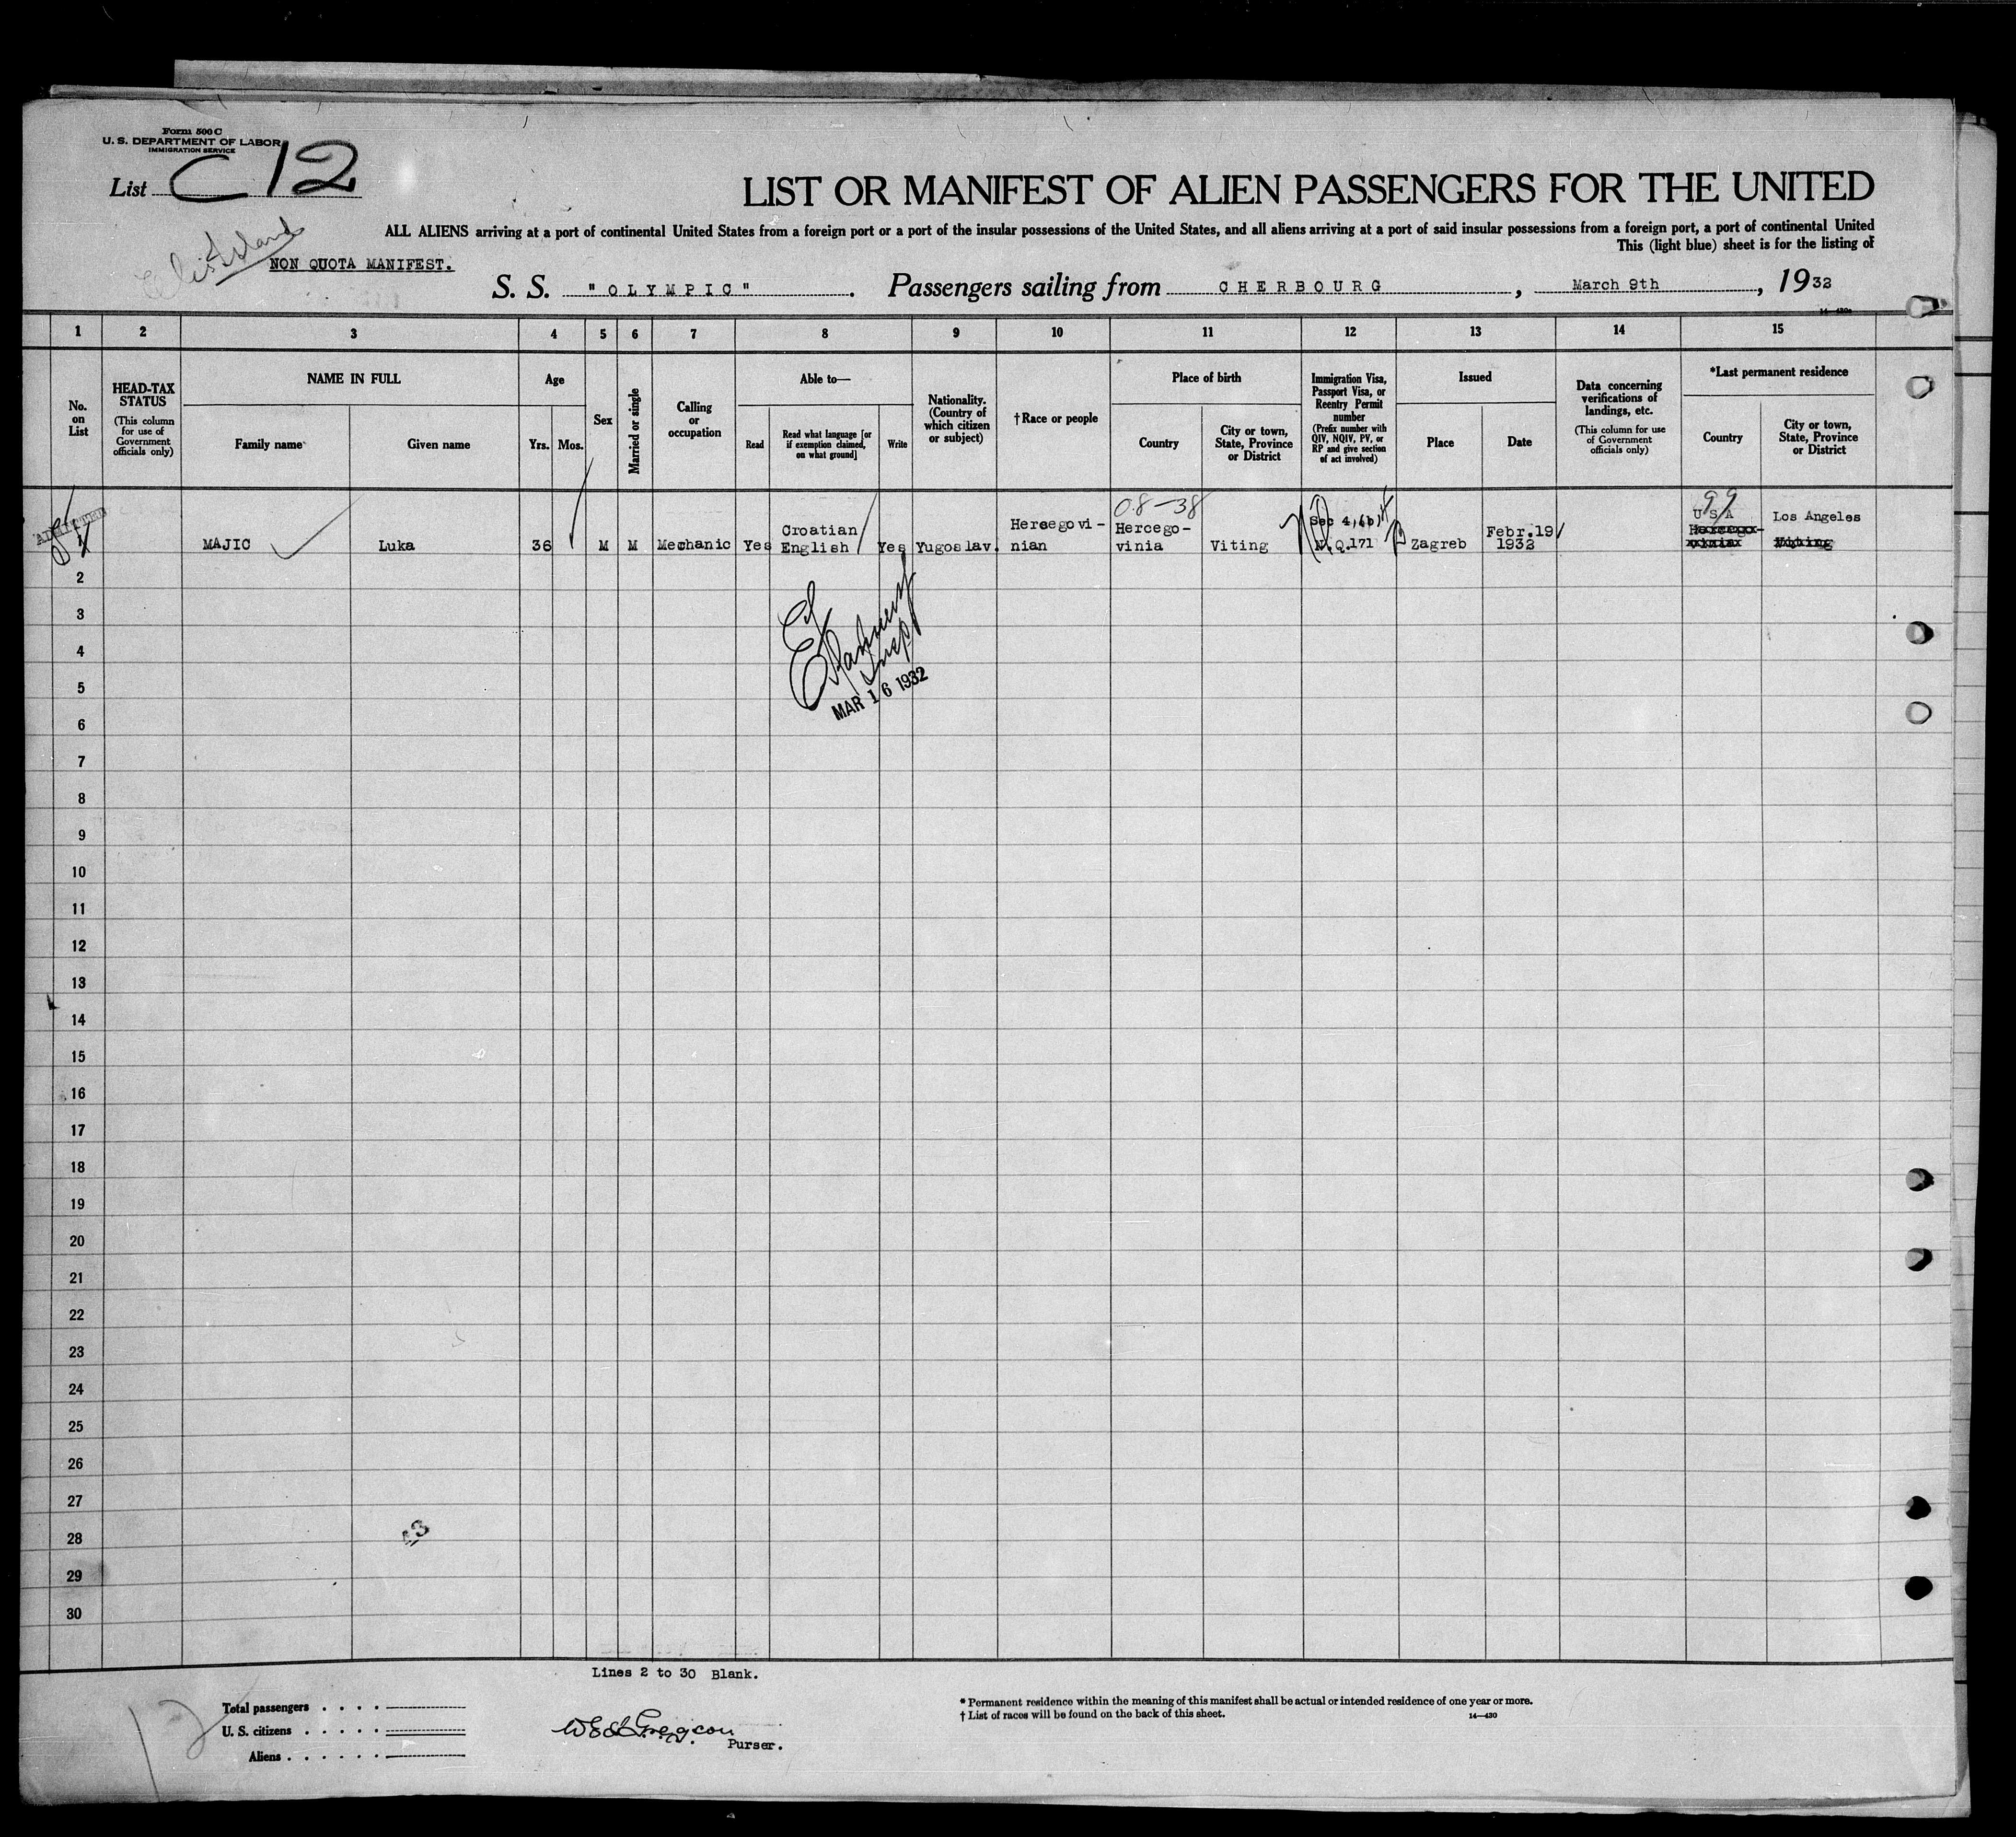 Form 500 C
U. S. DEPARTMENT OF LABOR
IMMIGRATION SERVICE
List C 12
LIST OR MANIFEST OF ALIEN PASSENGERS FOR THE UNITED
ALL ALIENS arriving at a port of continental United States from a foreign port or a port of the insular possessions of the United States, and all aliens arriving at a port of said insular possessions from a foreign port, a port of continental United
This (light blue) sheet is for the listing of
Island
NON QUOTA MANIFEST.
S. S. "OLYMPIC". Passengers sailing from CHERBOURG, March 9th, 1932
14-430a
1 2 3 4 5 6 7 8 9 10 11 12 13 14 15
No. on List
HEAD-TAX STATUS
(This column for use of Government officials only)
NAME IN FULL
Family name
Given name
Age
Yrs. Mos.
Sex
Married or single
Calling or occupation
Able to—
Read
Read what language [or if exemption claimed, on what ground]
Write
Nationality. (Country of which citizen or subject)
† Race or people
Place of birth
Country
City or town, State, Province or District
Immigration Visa, Passport Visa, or Reentry Permit number
(Prefix number with QIV, NQIV, PV, or RP and give section of act involved)
Issued
Place
Date
Data concerning verifications of landings, etc.
(This column for use of Government officials only)
*Last permanent residence
Country
City or town, State, Province or District
ADMITTED
08-38
99
1 MAJIC Luka 36 M M Mechanic Yes Croatian English Yes Yugoslav. Hercegovi-nian Hercego-vinia Viting Sec 4,(b), N.Q.171 Zagreb Febr.19 1932 U S A Hercego-vinia Los Angeles Viting
2
3
4
5
6
7
8
9
10
11
12
13
14
15
16
17
18
19
20
21
22
23
24
25
26
27
28
29
30
Insp
MAR 16 1932
Lines 2 to 30 Blank.
Total passengers . . . .
U. S. citizens . . . . .
Aliens . . . . . .
12
Purser.
* Permanent residence within the meaning of this manifest shall be actual or intended residence of one year or more.
† List of races will be found on the back of this sheet.
14-430